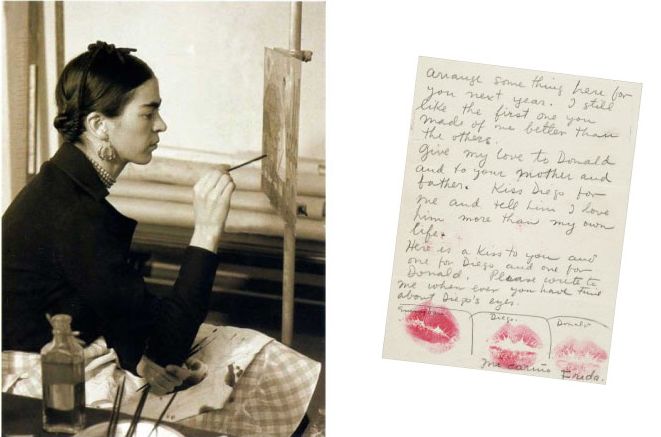 arrange some thing here for
you next year. I still
like the first one you
made of me better than
the others.
Give my love to Donald
and to your mother and
father. Kiss Diego for
me and tell him I love
him more than my own
life.
Here is a Kiss to you and
one for Diego and one for
Donald. Please write to
me when ever you have time
about Diego's eyes.
Diego. Donald
Mi cariño Frida.